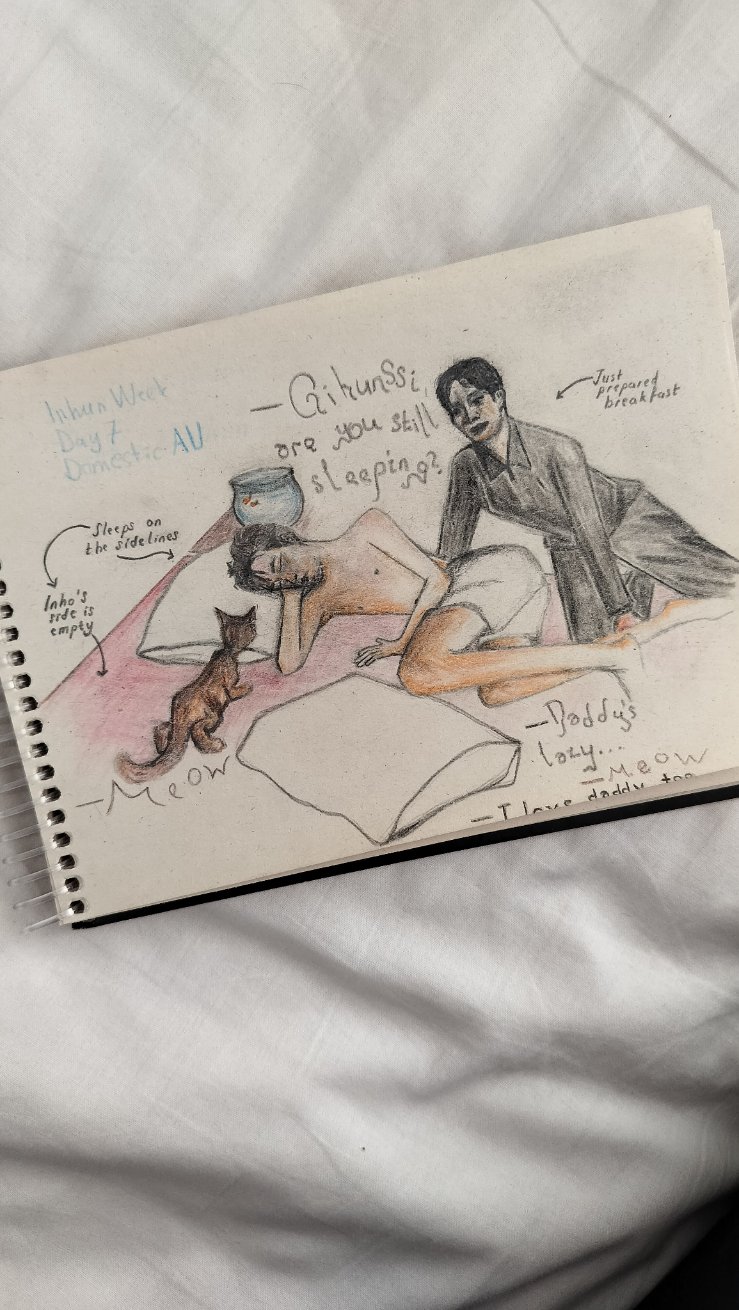 Inhun Week
Day 7
Domestic AU
—Gihunssi,
are you still
sleeping?
Just
prepared
breakfast
Sleeps on
the sidelines
Inho's
side is
empty
—Meow
—Daddy's
lazy...
—Meow
—I love daddy too